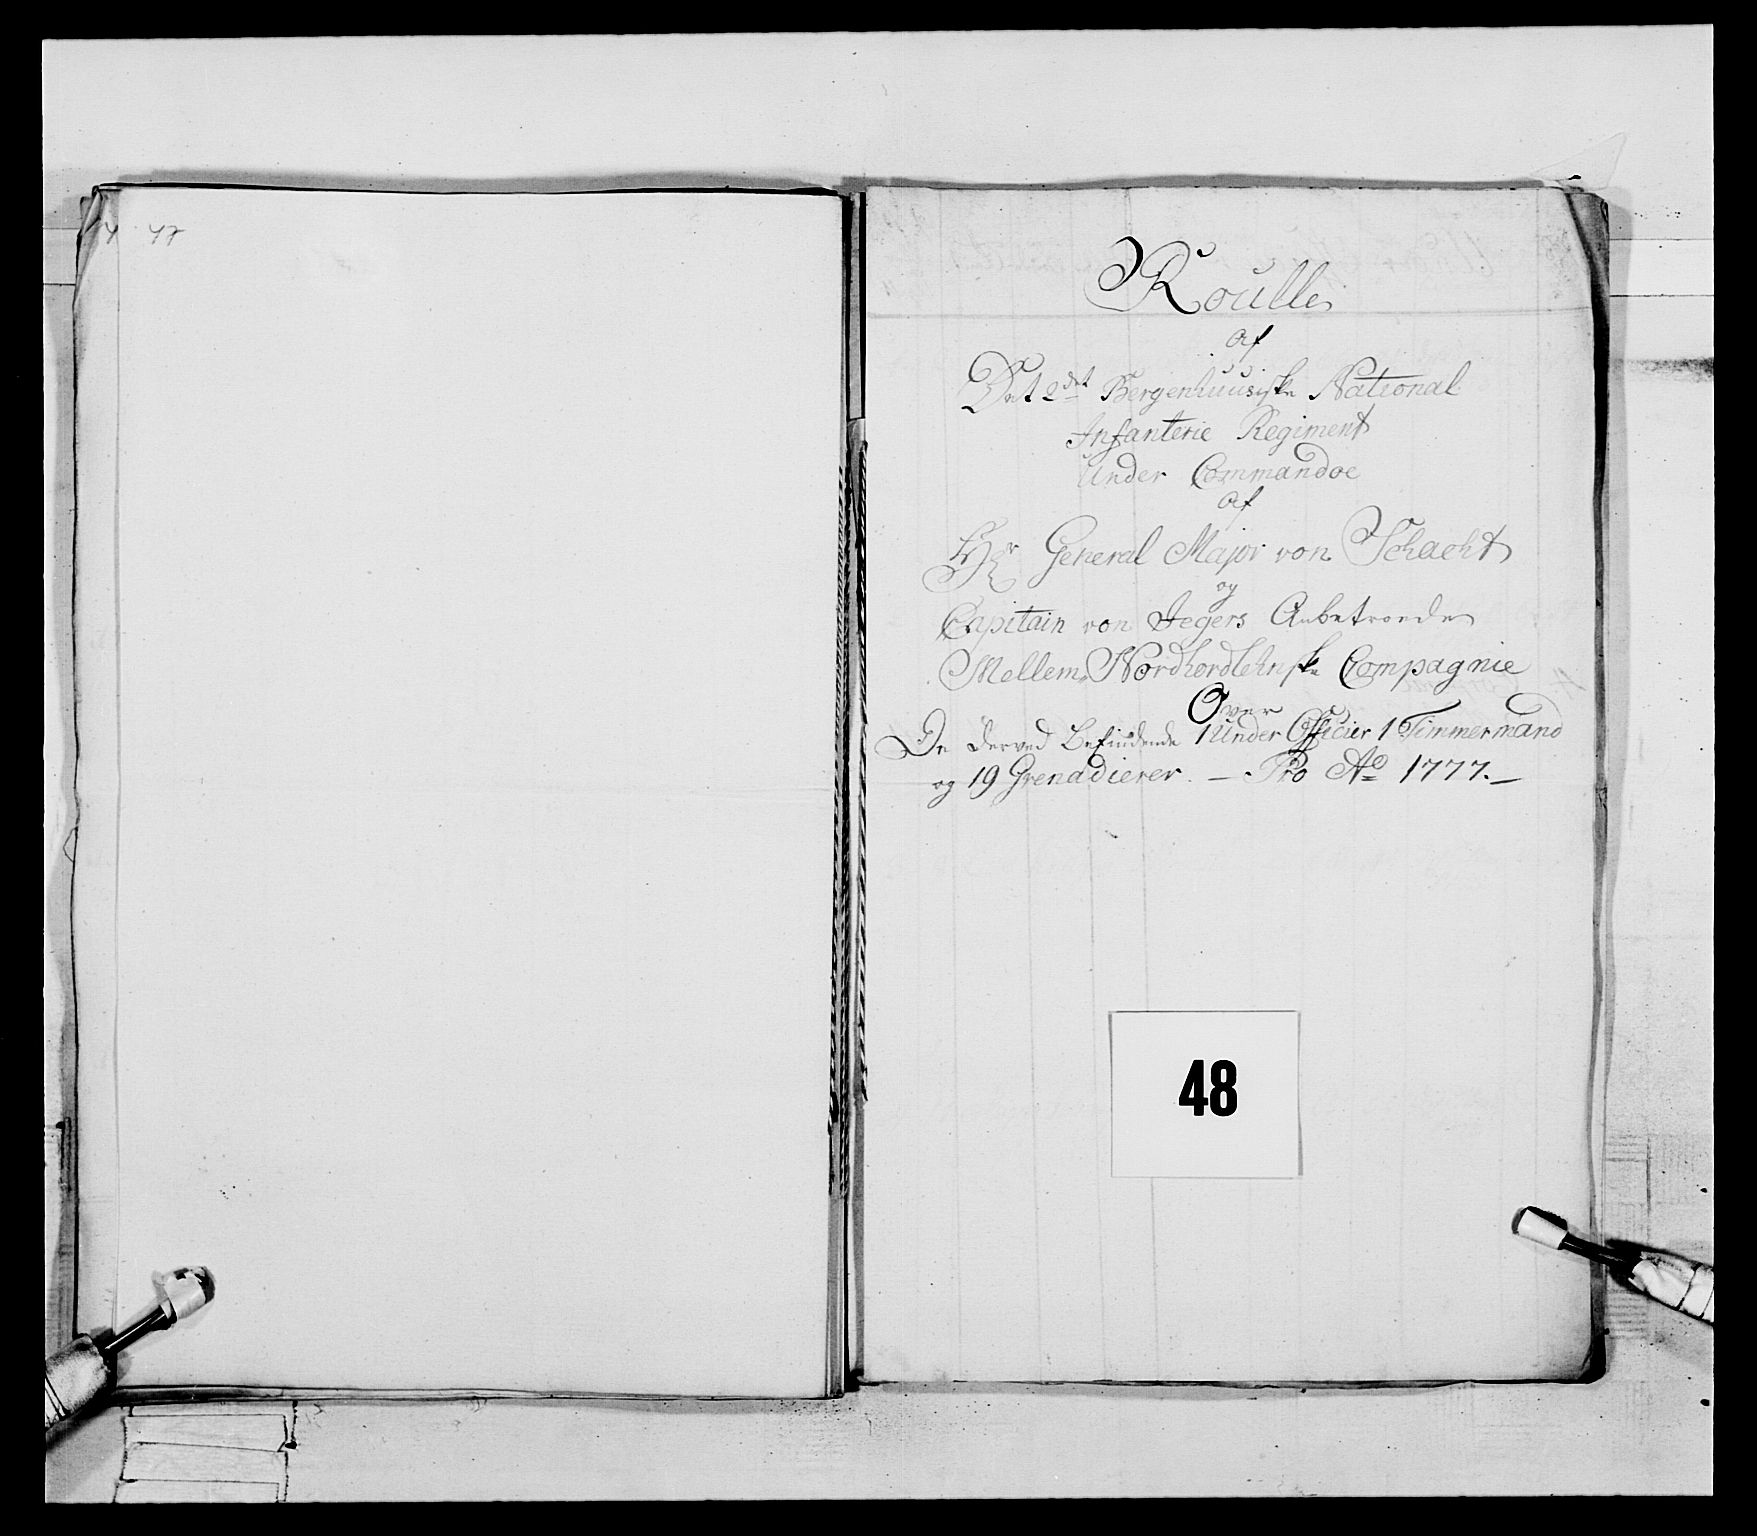 47
Roulle
Af
Det 2det Bergenhuusiske National
Infanterie Regiment
Under Commandoe
Af
Hr General Major von Schacht
og
Capitain von Jegers Anbetroede
Mellem Nordhordlehnske Compagnie
Over
De derved befindende 1 Under Officier 1 Timmermand
og 19 Grenadierer. — Pro Ao 1777. —
48